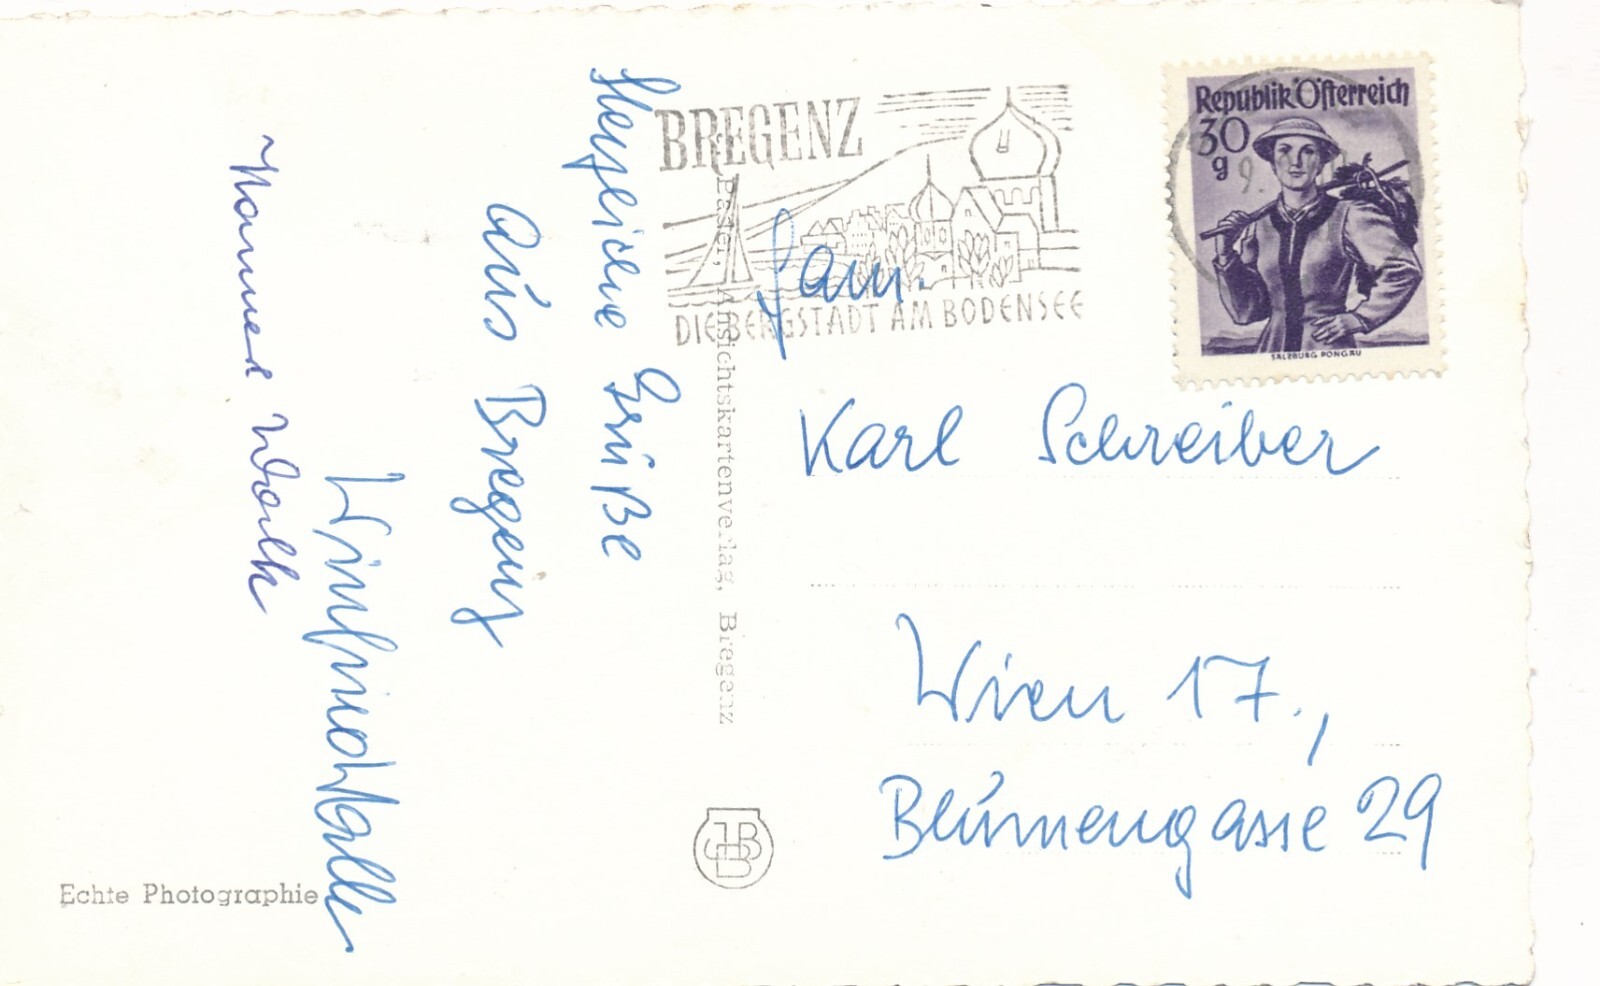 Herzliche Grüße
aus Bregenz
BREGENZ
DIE BERGSTADT AM BODENSEE
Republik Österreich
30
g
9.
SALZBURG PONGAU
Fam.
Karl Schreiber
Wien 17.,
Blumengasse 29
Ansichtskartenverlag, Bregenz
JBBB
Echte Photographie